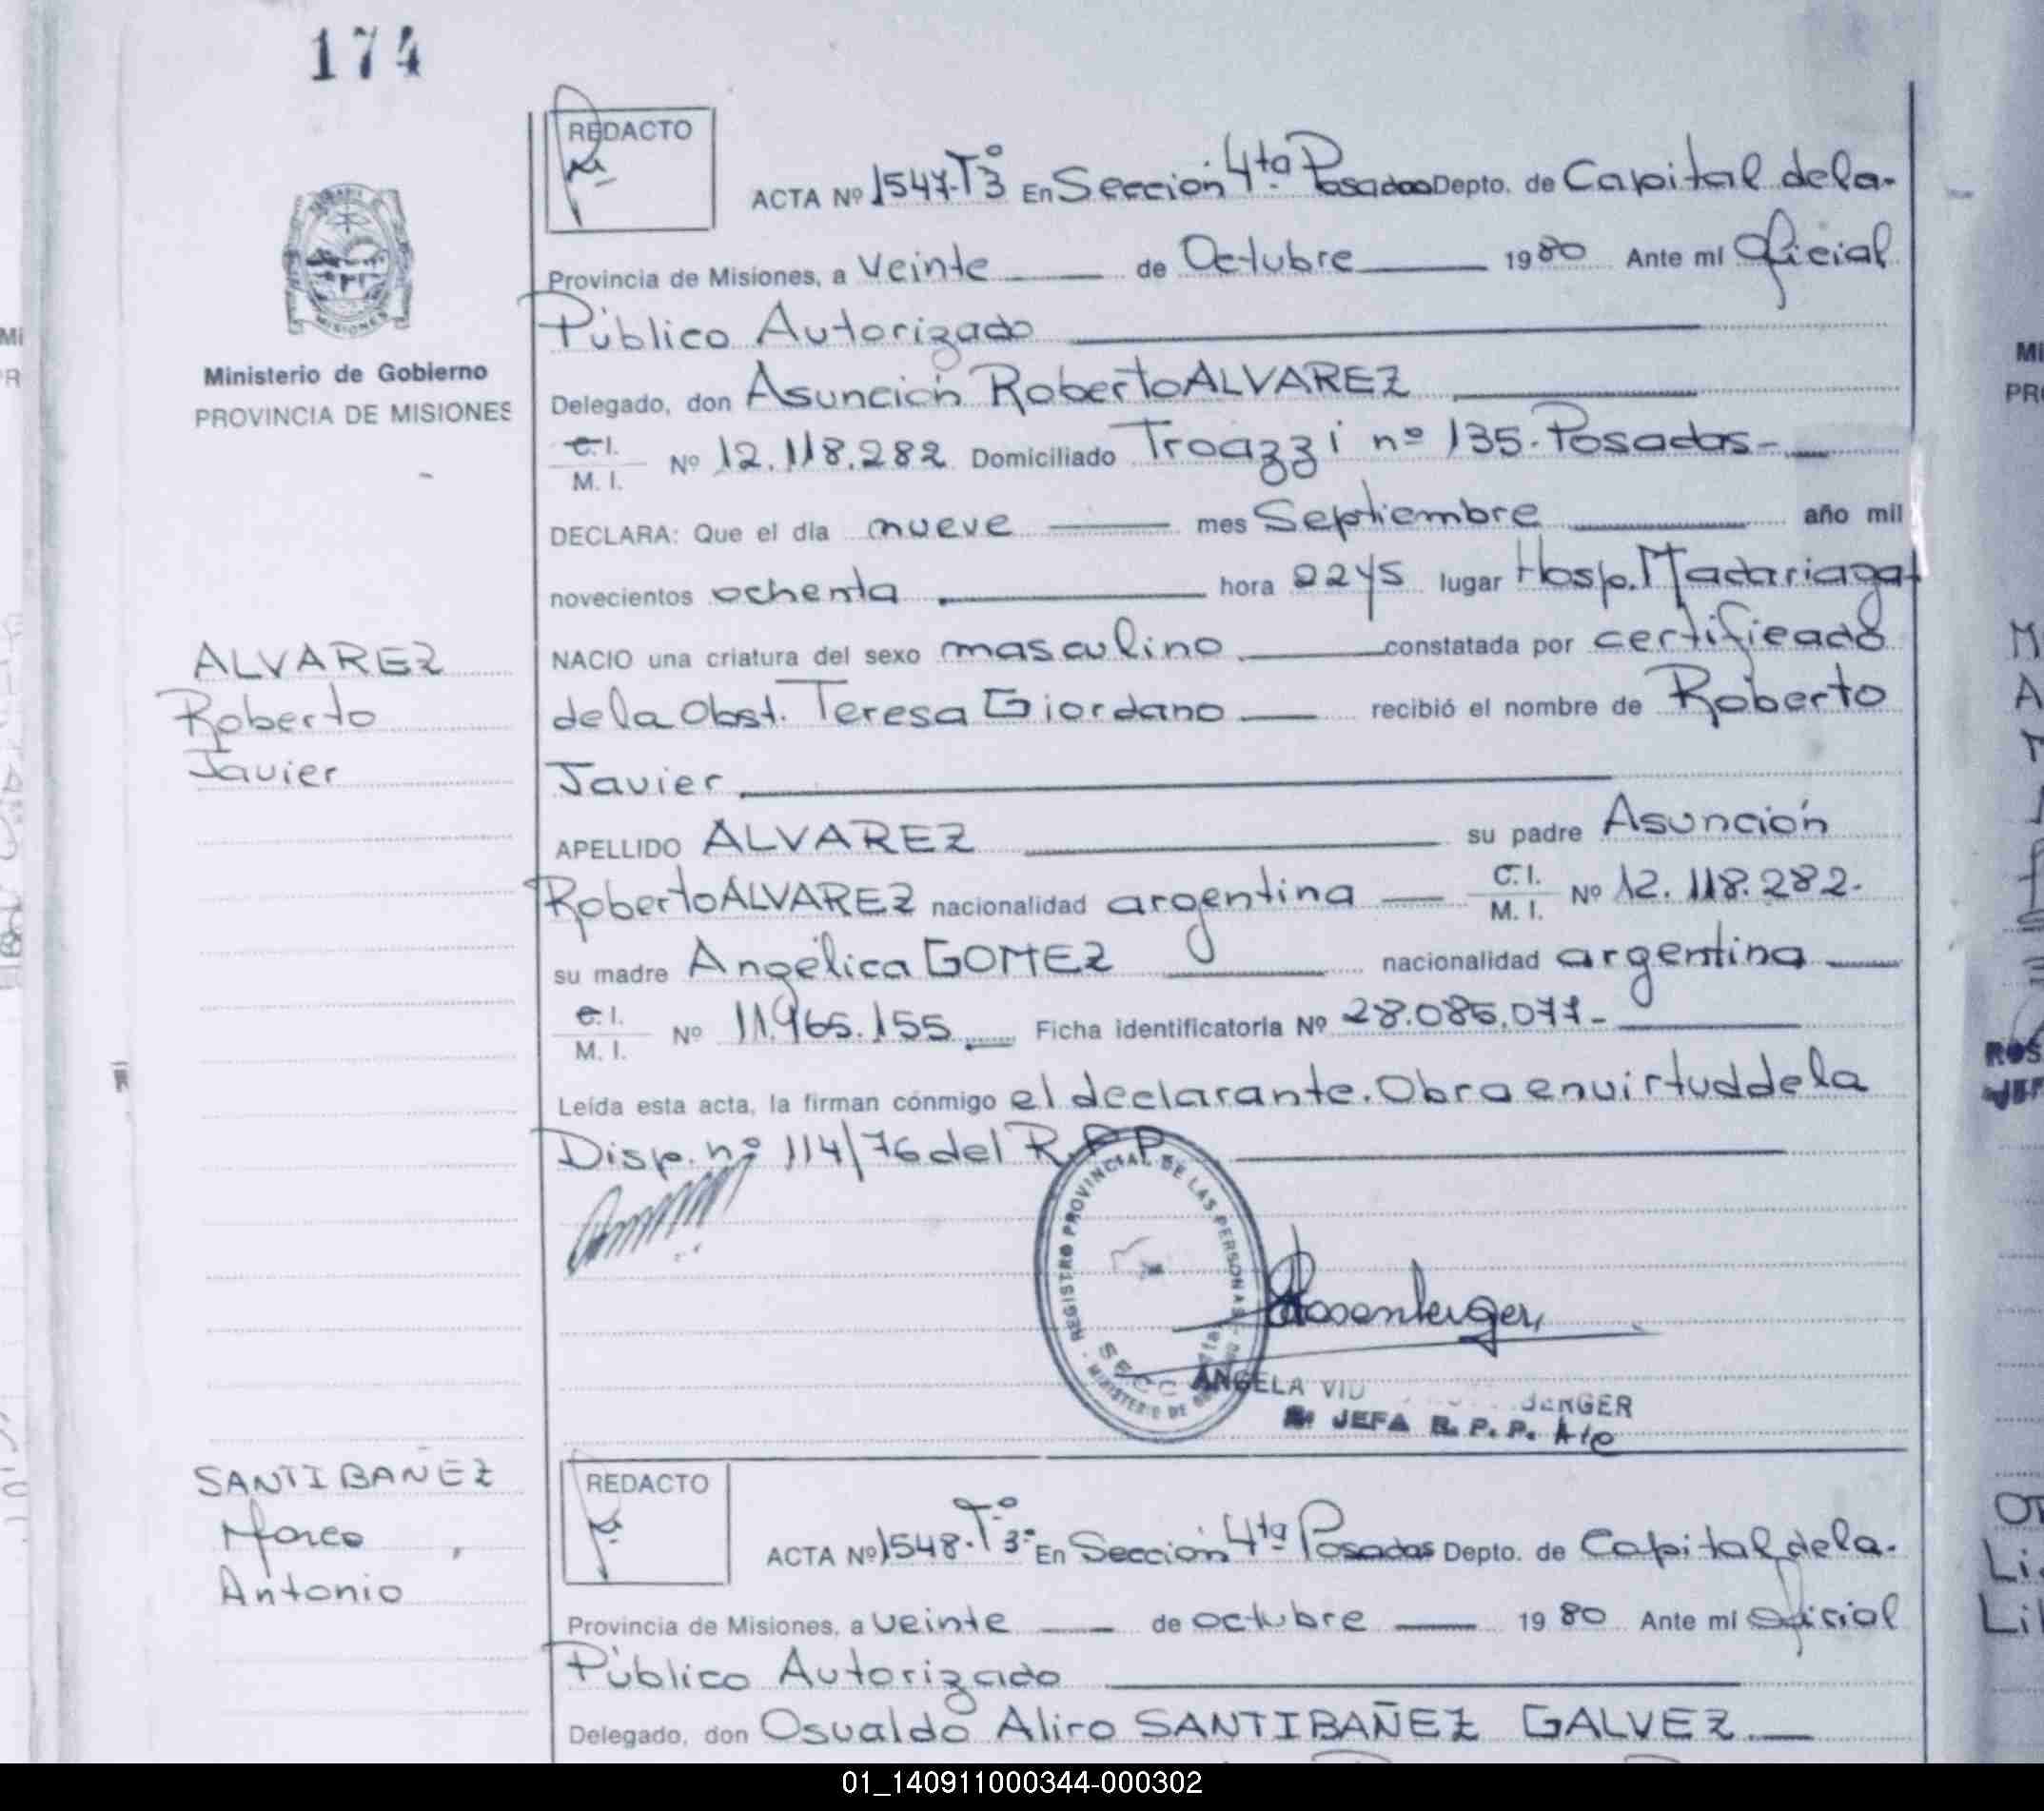 174
REDACTO
ACTA Nº 1547-Tº3 En Sección 4ta Posadas Depto. de Capital de la-
Provincia de Misiones, a Veinte de Octubre 1980 Ante mí Oficial
Público Autorizado
Delegado, don Asunción Roberto ALVAREZ
C.I.
M. I. Nº 12.118.282 Domiciliado Troazzi nº 135-Posadas-
DECLARA: Que el día nueve mes Septiembre año mil
novecientos ochenta hora 22y5 lugar Hosp. Madariaga
NACIO una criatura del sexo masculino constatada por certificado
de la Obst. Teresa Giordano recibió el nombre de Roberto
Javier
APELLIDO ALVAREZ su padre Asunción
Roberto ALVAREZ nacionalidad argentina C.I. M. I. Nº 12.118.282-
su madre Angélica GOMEZ nacionalidad argentina
C.I.
M. I. Nº 11.965.155 Ficha identificatoria Nº 28.085.077-
Leída esta acta, la firman cónmigo el declarante. Obra en virtud de la
Disp. nº 114/76 del R.P.P.
REGISTRO PROVINCIAL DE LAS PERSONAS
MINISTERIO DE
ANGELA
JEFA R. P. P. A/c
Ministerio de Gobierno
PROVINCIA DE MISIONES
ALVAREZ
Roberto
Javier
SANTIBAÑEZ
Marco
Antonio
REDACTO
ACTA Nº 1548-Tº3º En Sección 4ta Posadas Depto. de Capital de la-
Provincia de Misiones, a veinte de octubre 1980 Ante mí Oficial
Público Autorizado
Delegado, don Osvaldo Aliro SANTIBAÑEZ GALVEZ
01_140911000344-000302